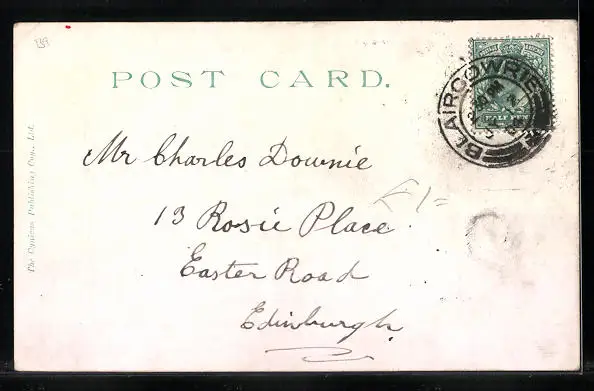 POST CARD.
BLAIRGOWRIE
HALFPENNY
Mr Charles Downie
£1=
13 Rosie Place
Easter Road
Edinburgh
Publishing Coy., Ltd.